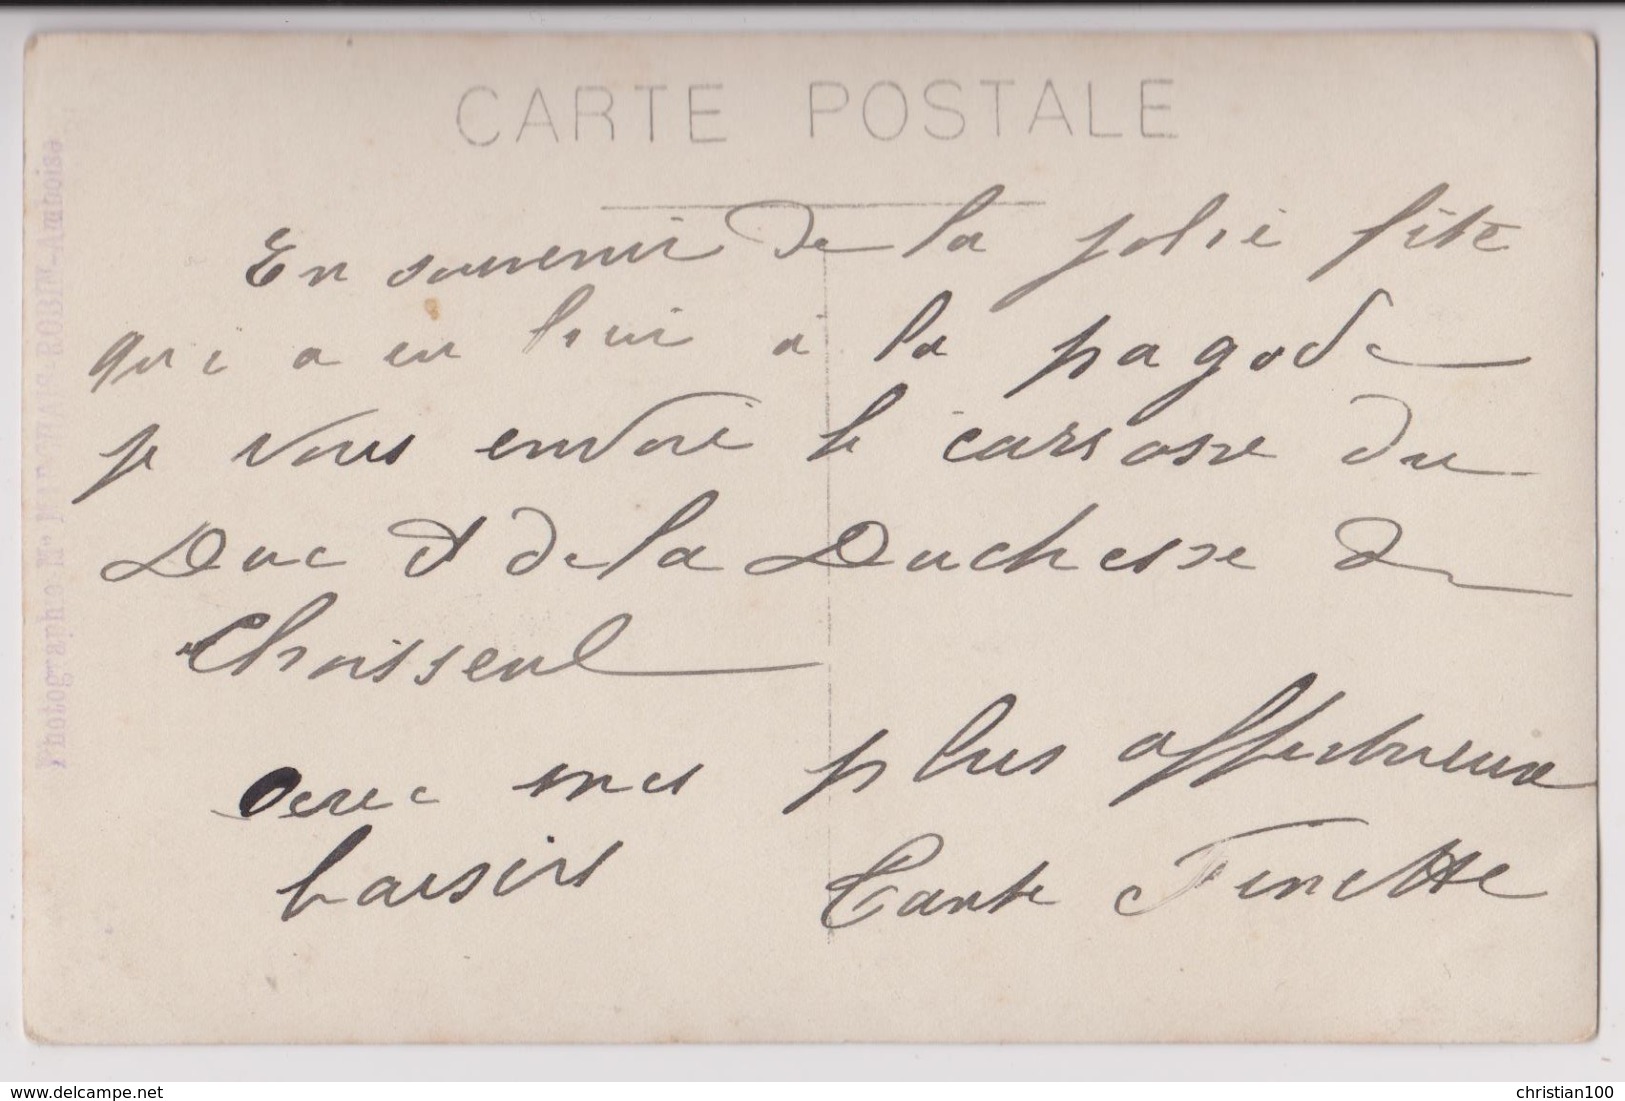 CARTE POSTALE
En souvenir de la jolie fête
qui a eu lieu à la pagode
je vous envoie le carrosse du
Duc et de la Duchesse de
Choisseul
avec mes plus affectueux
baisers Tante Finette
Photographie Mᵐᵉ ROBIN-Amboise
www.delcampe.net
christian100